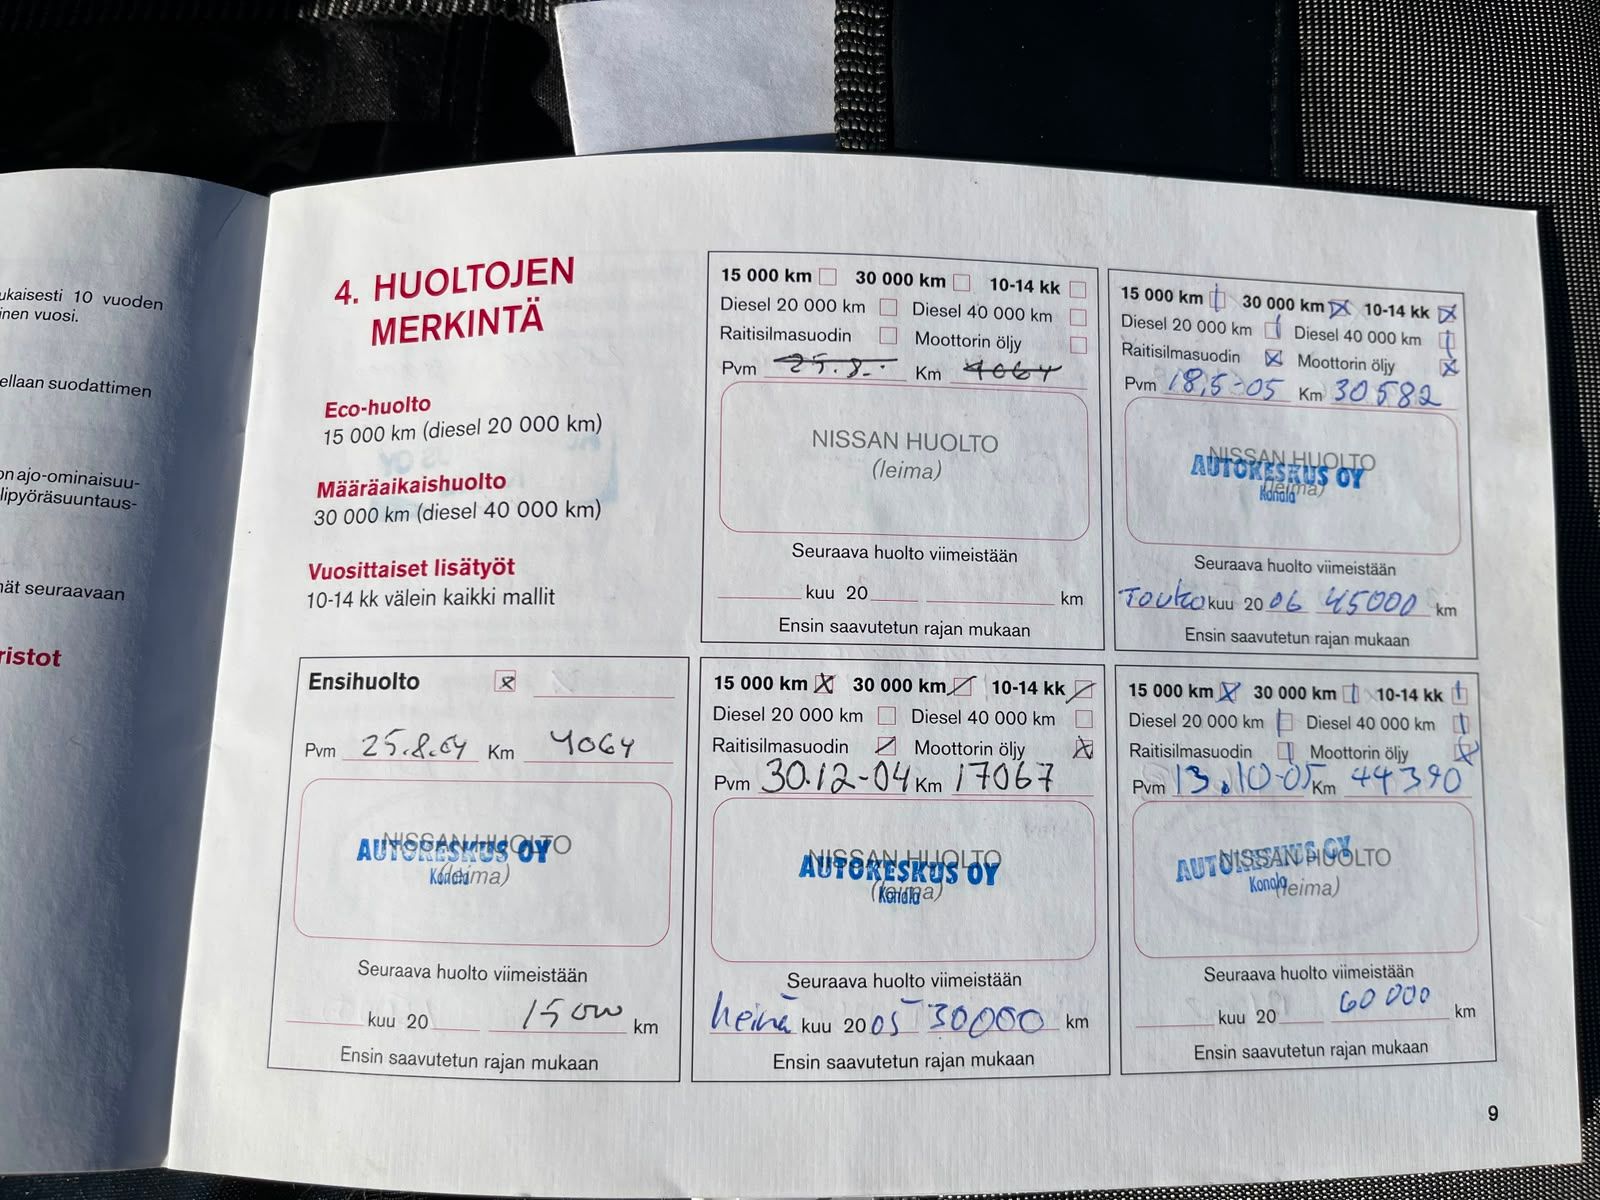 ukaisesti 10 vuoden
inen vuosi.
ellaan suodattimen
on ajo-ominaisuu-
lipyöräsuuntaus-
ät seuraavaan
ristot
4. HUOLTOJEN
MERKINTÄ
Eco-huolto
15 000 km (diesel 20 000 km)
Määräaikaishuolto
30 000 km (diesel 40 000 km)
Vuosittaiset lisätyöt
10-14 kk välein kaikki mallit
15 000 km 30 000 km 10-14 kk
Diesel 20 000 km Diesel 40 000 km
Raitisilmasuodin Moottorin öljy
Pvm 25.8.. Km 4064
NISSAN HUOLTO
(leima)
Seuraava huolto viimeistään
kuu 20 km
Ensin saavutetun rajan mukaan
15 000 km 30 000 km 10-14 kk
Diesel 20 000 km Diesel 40 000 km
Raitisilmasuodin Moottorin öljy
Pvm 18,5-05 Km 30582
NISSAN HUOLTO
AUTOKESKUS OY
(leima)
Konala
Seuraava huolto viimeistään
Touko kuu 20 06 45000 km
Ensin saavutetun rajan mukaan
Ensihuolto x
Pvm 25.8.04 Km 4064
NISSAN HUOLTO
AUTOKESKUS OY
(leima)
Konala
Seuraava huolto viimeistään
kuu 20 15000 km
Ensin saavutetun rajan mukaan
15 000 km X 30 000 km 10-14 kk
Diesel 20 000 km Diesel 40 000 km
Raitisilmasuodin Moottorin öljy X
Pvm 30.12-04 Km 17067
NISSAN HUOLTO
AUTOKESKUS OY
(leima)
Konala
Seuraava huolto viimeistään
heinä kuu 20 05 30000 km
Ensin saavutetun rajan mukaan
15 000 km X 30 000 km 10-14 kk
Diesel 20 000 km Diesel 40 000 km
Raitisilmasuodin Moottorin öljy X
Pvm 13.10-05 Km 44390
NISSAN HUOLTO
AUTOKESKUS OY
(leima)
Konala
Seuraava huolto viimeistään
kuu 20 60 000 km
Ensin saavutetun rajan mukaan
9